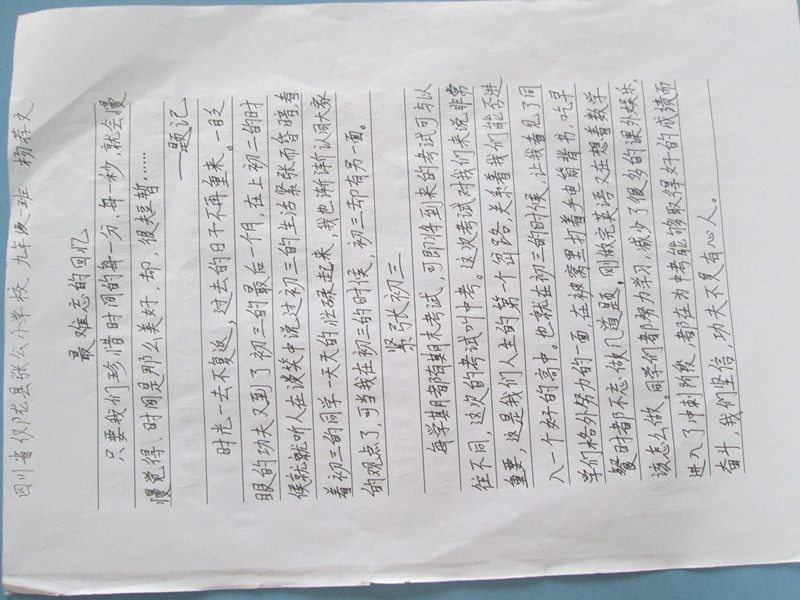 四川省仪陇县张公小学校 九年级一班 杨芬文
最难忘的回忆
只要我们珍惜时间的每一分,每一秒,就会慢
慢觉得,时间是那么美好,却,很短暂……
——题记
时光一去不复返,过去的日子不再重来。一眨
眼的功夫又到了初三的最后一个月,在上初二的时
候就就听人在谈笑中说过初三的生活紧张而昏暗,看
着初三的同学一天天的忙碌起来,我也渐渐认同大家
的观点了,可当我在初三的时候,初三却有另一面。
紧张初三
每学期都有期末考试,可即将到来的考试可与以
往不同,这次的考试叫中考。这次考试对我们来说非常
重要,这是我们人生的第一个岔路,关系着我们能否进
入一个好的高中。也就在初三的时候,让我看见了同
学们格外努力的一面,在被窝里打着手电筒背书,吃早
餐时都不忘做几道题,刚做完英语又在想着数学
该怎么做。同学们都努力学习,减少了很多的课外娱乐,
进入了冲刺阶段,都在为中考能够取得好的成绩而
奋斗,我们坚信,功夫不负有心人。